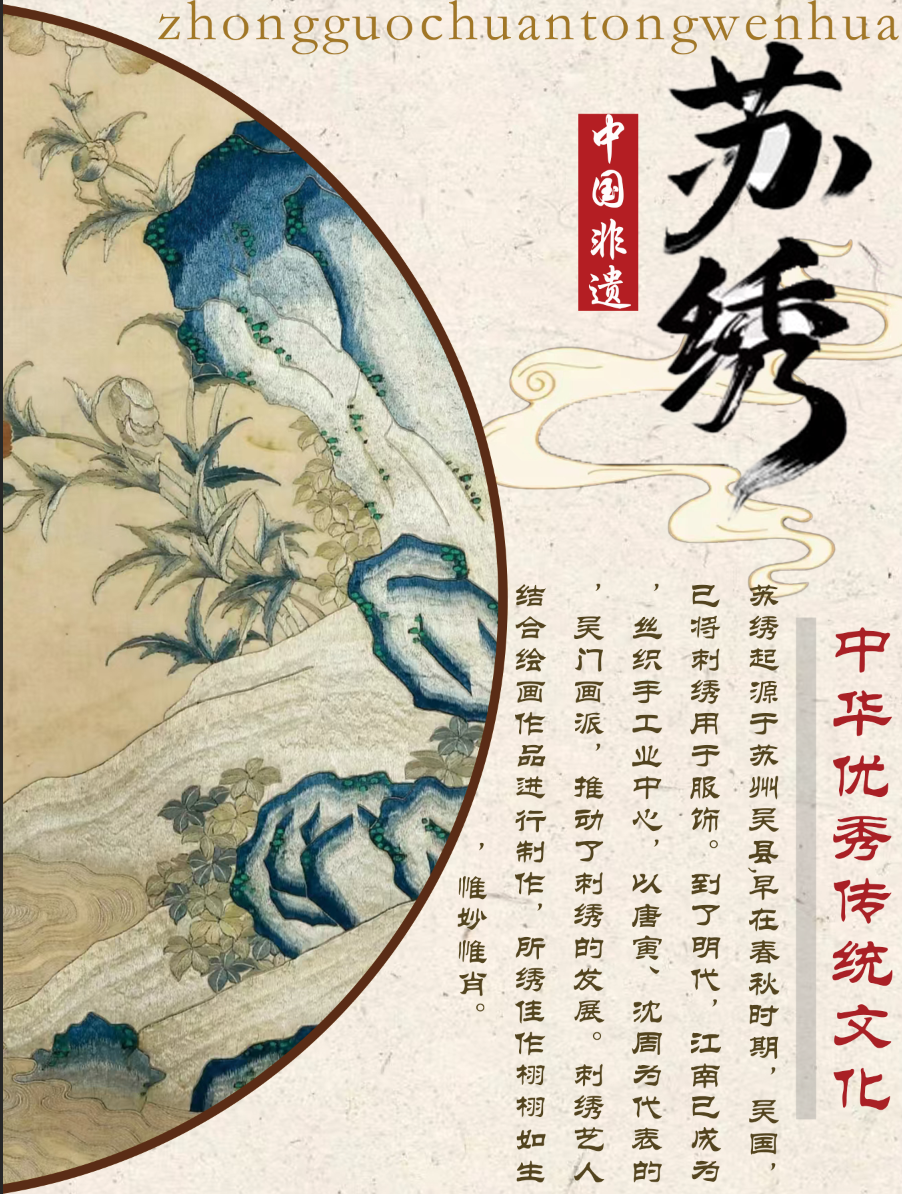 zhongguochuantongwenhua
苏绣
中国非遗
中华优秀传统文化
苏绣起源于苏州吴县,早在春秋时期，吴国，
已将刺绣用于服饰。到了明代，江南已成为
，丝织手工业中心，以唐寅、沈周为代表的
，吴门画派，推动了刺绣的发展。刺绣艺人
结合绘画作品进行制作，所绣佳作栩栩如生
，惟妙惟肖。